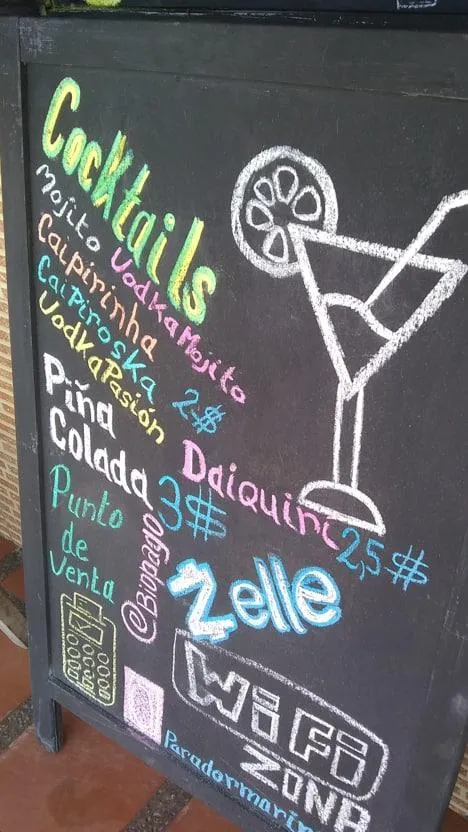 Cocktails
Mojito VodkaMojito
Caipirinha
Caipiroska
VodkaPasión 2$
Piña
Colada 3$
Daiquiri 2,5$
Punto
de
Venta
@Biopago
Zelle
WiFi
ZONA